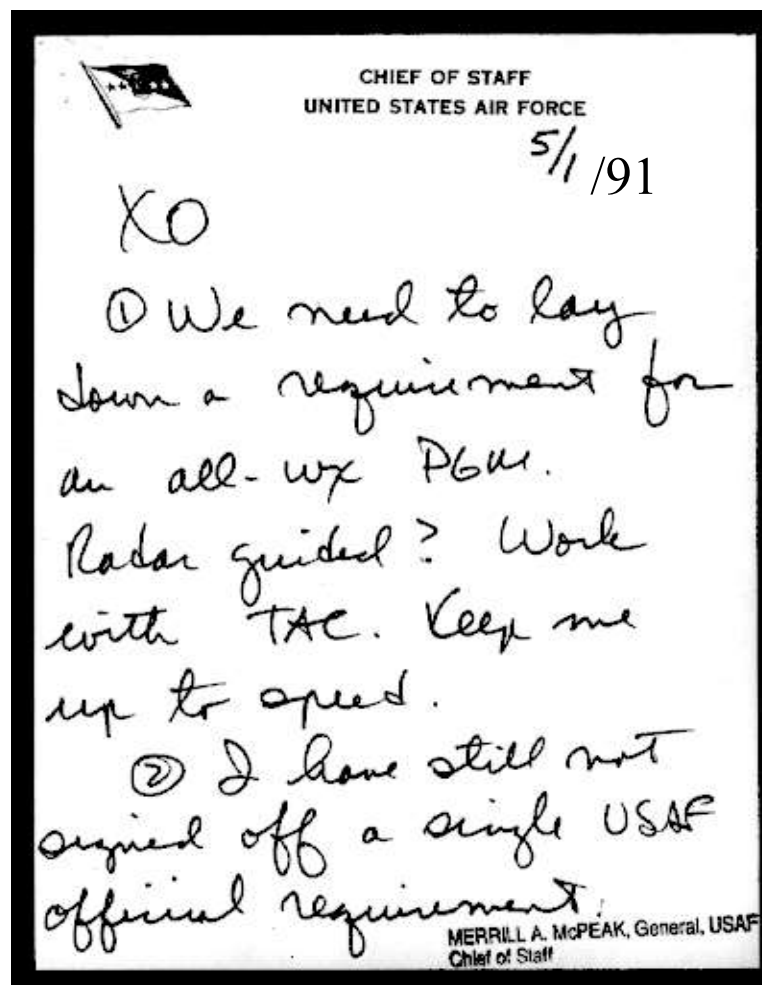 CHIEF OF STAFF
UNITED STATES AIR FORCE
5/1 /91
XO
① We need to lay
down a requirement for
an all-wx PGM.
Radar guided? Work
with TAC. Keep me
up to speed.
② I have still not
signed off a single USAF
official requirement.
MERRILL A. McPEAK, General, USAF
Chief of Staff